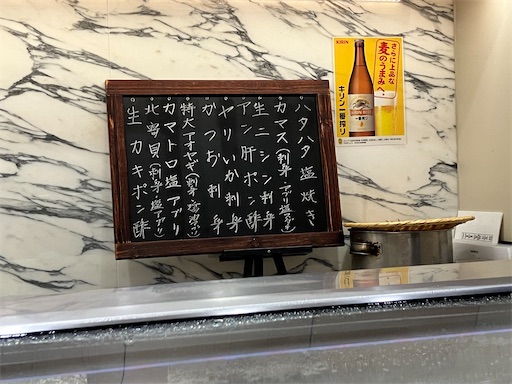 ハタハタ塩焼き
カマス(刺身・アブリ塩アブリ)
生ニシン刺身
アン肝ポン酢
ヤリいか刺身
かつお刺身
特大アオヤギ(刺身・磯辺
カマトロ塩アブリ
北寄貝(刺身・塩アブリ)
生カキポン酢
KIRIN
さらに上品な
麦のうまみへ。
キリン一番搾り